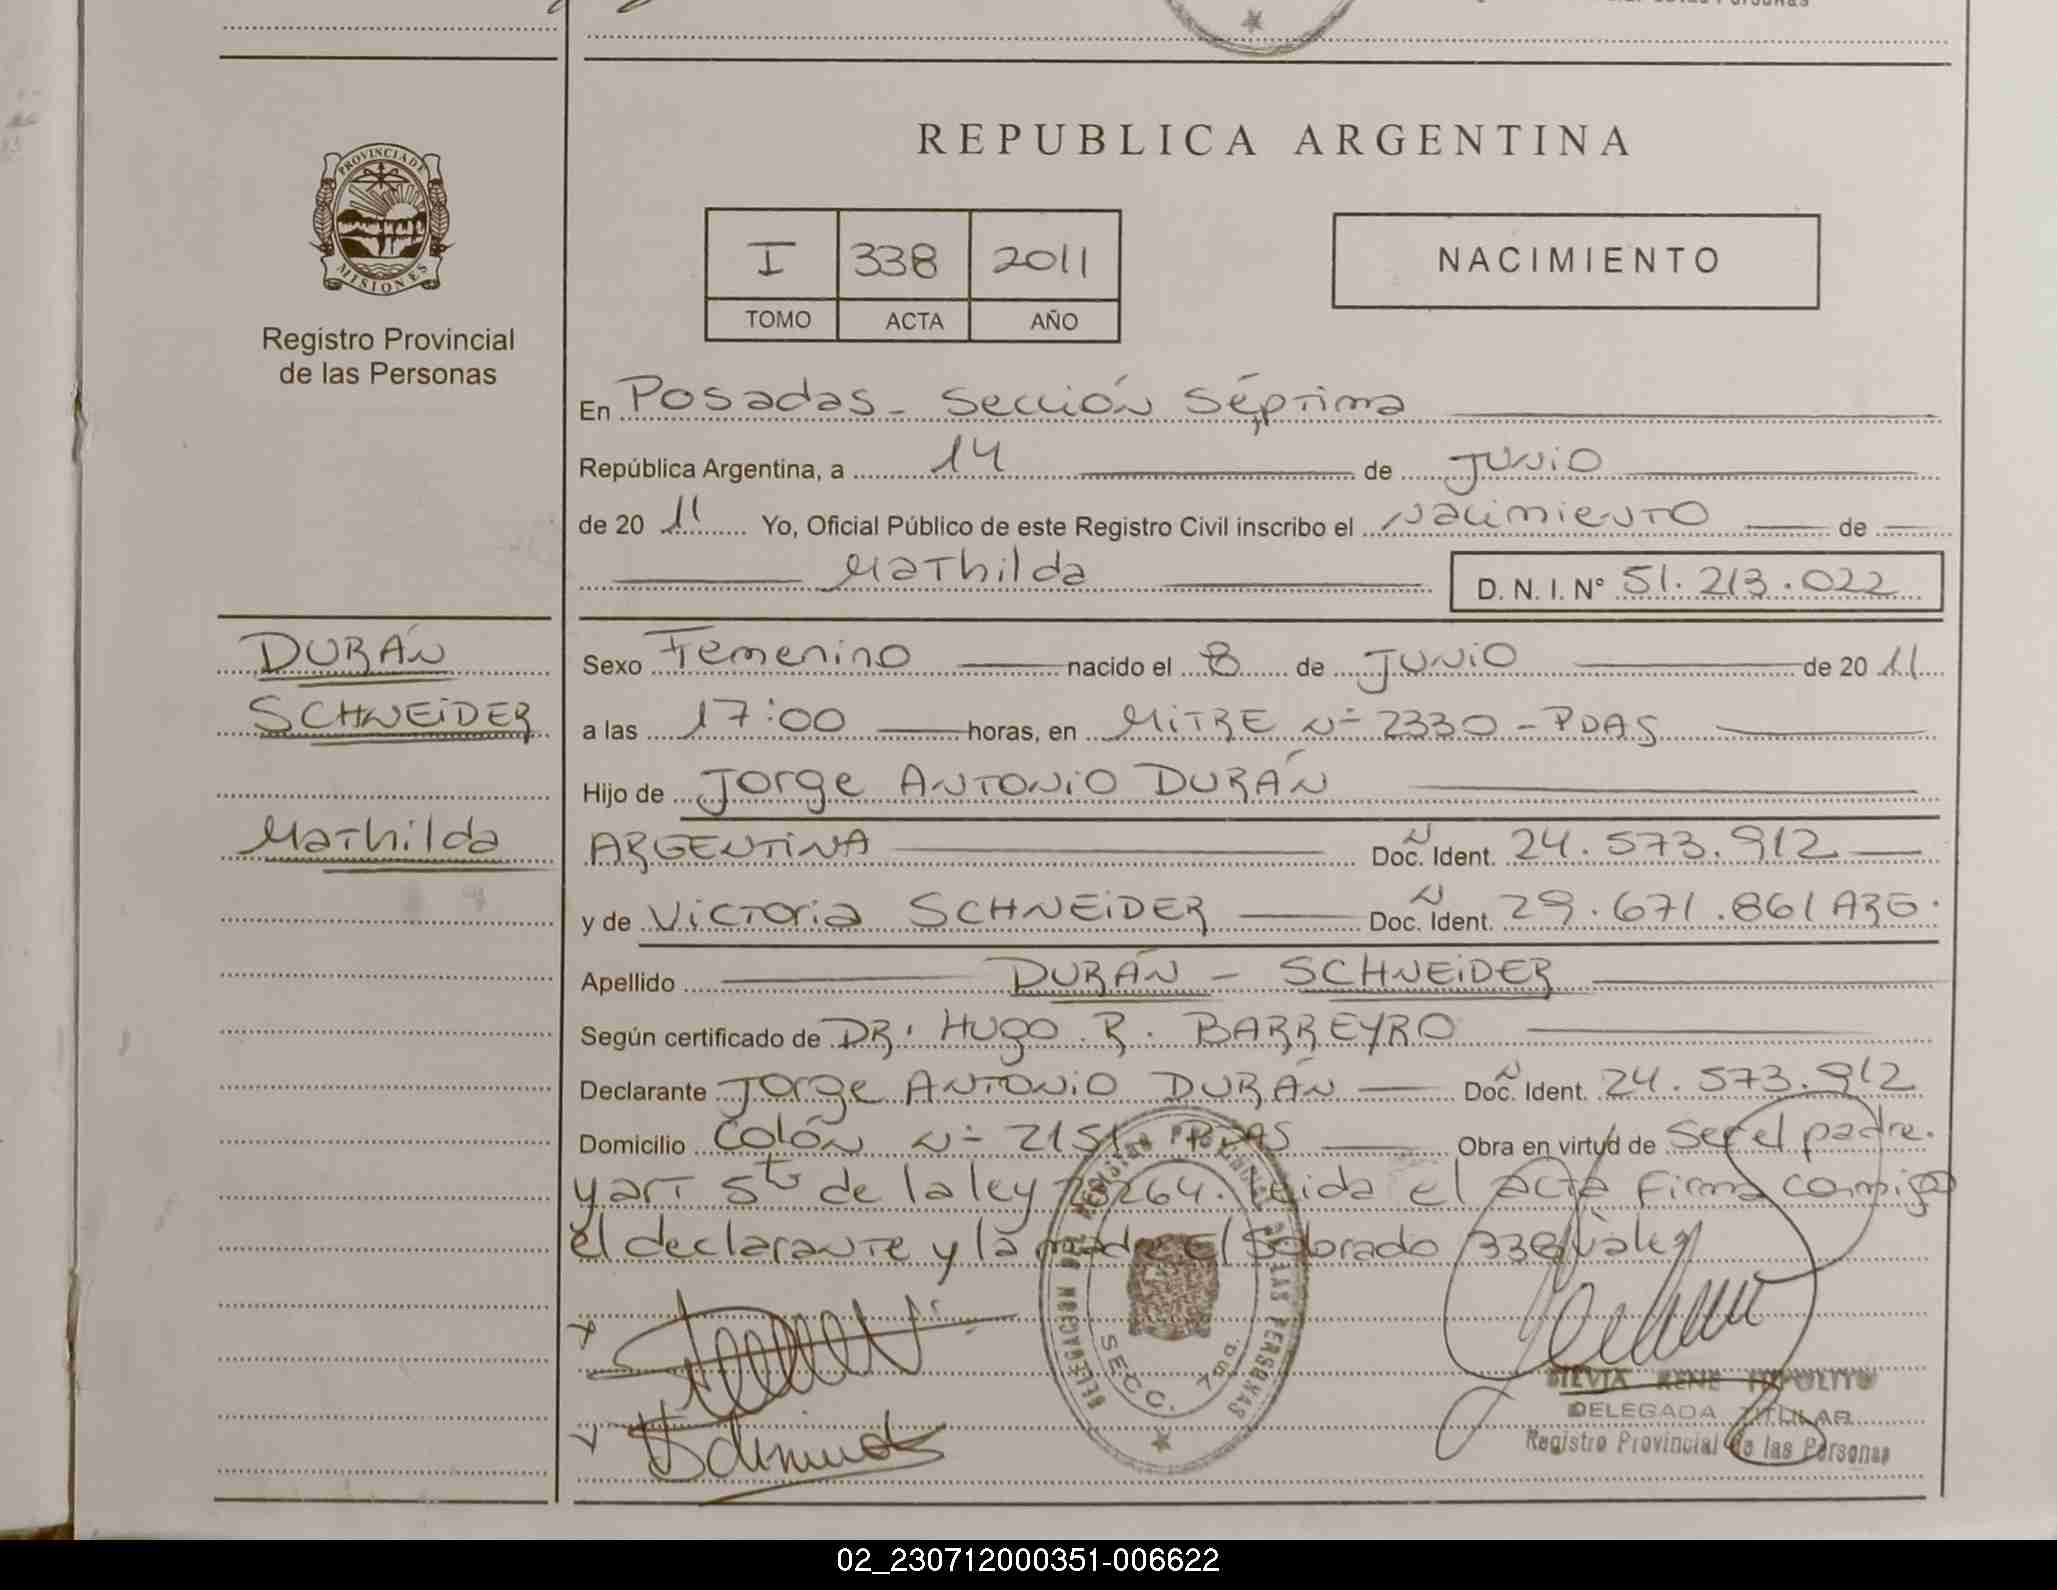 REPUBLICA ARGENTINA
PROVINCIA DE
MISIONES
Registro Provincial
de las Personas
I 338 2011
TOMO ACTA AÑO
NACIMIENTO
En Posadas - Sección Séptima
República Argentina, a 14 de Junio
de 2011 Yo, Oficial Público de este Registro Civil inscribo el Nacimiento de
Mathilda D. N. I. N° 51.213.022
DURÁN
SCHNEIDER
Mathilda
Sexo Femenino nacido el 8 de Junio de 2011
a las 17:00 horas, en MITRE N° 2330 - PDAS
Hijo de Jorge ANTONIO DURÁN
ARGENTINA Doc. Ident. 24.573.912
y de Victoria SCHNEIDER Doc. Ident. 29.671.861 ARG.
Apellido DURÁN - SCHNEIDER
Según certificado de DR. HUGO R. BARREYRO
Declarante Jorge ANTONIO DURÁN Doc. Ident. 24.573.912
Domicilio Colón N° 2151 PDAS Obra en virtud de ser el padre.
y art 5to de la ley 18264. Leida el acta firma conmigo
el declarante y la madre El sobrado 338 vale
DELEGACION DEL REGISTRO PROVINCIAL DE LAS PERSONAS
SECC. 7ma.
SILVIA RENE IPPOLITO
DELEGADA TITULAR
Registro Provincial de las Personas
02_230712000351-006622